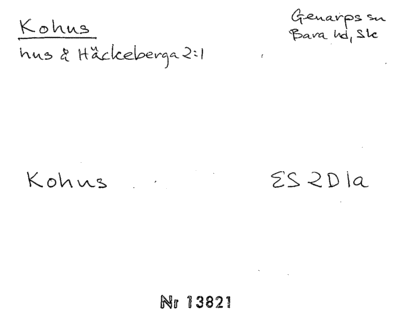 Kohus
Genarps sn
Bara hd, Sk
hus å Häckeberga 2:1
Kohus
ES 2D1a
Nr 13821